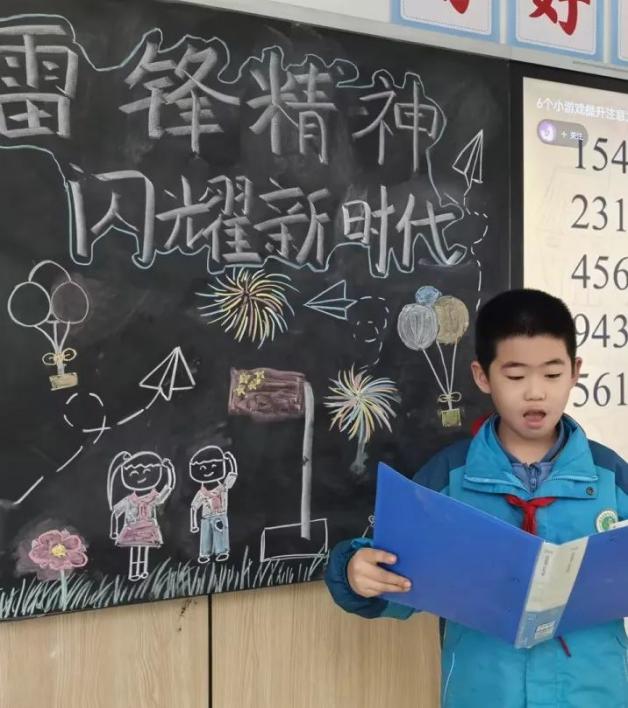 雷锋精神
闪耀新时代
好
6个小游戏提升注意
+ 关注
154
231
456
943
561